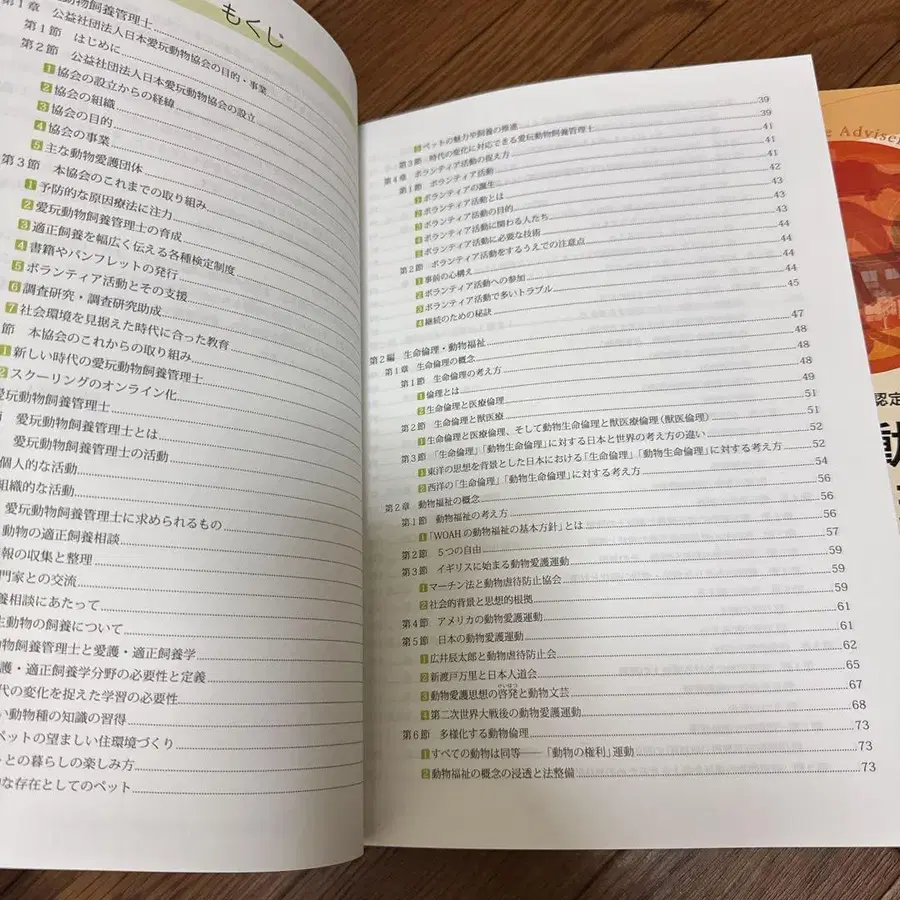 もくじ
動物飼養管理士
第1章 公益社団法人日本愛玩動物協会の目的・事業
第1節 はじめに
第2節 公益社団法人日本愛玩動物協会の設立
1 協会の設立からの経緯
2 協会の組織
3 協会の目的
4 協会の事業
5 主な動物愛護団体
第3節 本協会のこれまでの取り組み
1 予防的な原因療法に注力
2 愛玩動物飼養管理士の育成
3 適正飼養を幅広く伝える各種検定制度
4 書籍やパンフレットの発行
5 ボランティア活動とその支援
6 調査研究・調査研究助成
7 社会環境を見据えた時代に合った教育
節 本協会のこれからの取り組み
1 新しい時代の愛玩動物飼養管理士
2 スクーリングのオンライン化
愛玩動物飼養管理士
愛玩動物飼養管理士とは
愛玩動物飼養管理士の活動
個人的な活動
組織的な活動
愛玩動物飼養管理士に求められるもの
動物の適正飼養相談
報の収集と整理
門家との交流
養相談にあたって
生動物の飼養について
物飼養管理士と愛護・適正飼養学
護・適正飼養学分野の必要性と定義
代の変化を捉えた学習の必要性
い動物種の知識の習得
ペットの望ましい住環境づくり
トとの暮らしの楽しみ方
的な存在としてのペット
1 ペットの魅力や飼養の推進 39
第3節 時代の変化に対応できる愛玩動物飼養管理士 39
第4章 ボランティア活動の捉え方 41
第1節 ボランティア活動 41
1 ボランティアの誕生 41
2 ボランティア活動とは 42
3 ボランティア活動の目的 43
4 ボランティア活動に関わる人たち 43
5 ボランティア活動に必要な技術 43
第2節 ボランティア活動をするうえでの注意点 44
1 事前の心構え 44
2 ボランティア活動への参加 44
3 ボランティア活動で多いトラブル 44
4 継続のための秘訣 45
第2編 生命倫理・動物福祉 47
第1章 生命倫理の概念 48
第1節 生命倫理の考え方 48
1 倫理とは 48
2 生命倫理と医療倫理 49
第2節 生命倫理と獣医療 51
1 生命倫理と医療倫理、そして動物生命倫理と獣医療倫理(獣医倫理) 51
第3節 「生命倫理」「動物生命倫理」に対する日本と世界の考え方の違い 52
1 東洋の思想を背景とした日本における「生命倫理」「動物生命倫理」に対する考え方 52
2 西洋の「生命倫理」「動物生命倫理」に対する考え方 54
第2章 動物福祉の概念 56
第1節 動物福祉の考え方 56
1 「WOAHの動物福祉の基本方針」とは 56
第2節 5つの自由 57
第3節 イギリスに始まる動物愛護運動 59
1 マーチン法と動物虐待防止協会 59
2 社会的背景と思想的根拠 59
第4節 アメリカの動物愛護運動 61
第5節 日本の動物愛護運動 61
1 広井辰太郎と動物虐待防止会 62
2 新渡戸万里と日本人道会 65
3 動物愛護思想の啓発と動物文芸 67
4 第二次世界大戦後の動物愛護運動 68
第6節 多様化する動物倫理 73
1 すべての動物は同等――「動物の権利」運動 73
2 動物福祉の概念の浸透と法整備 73
e Adviser
認定
動